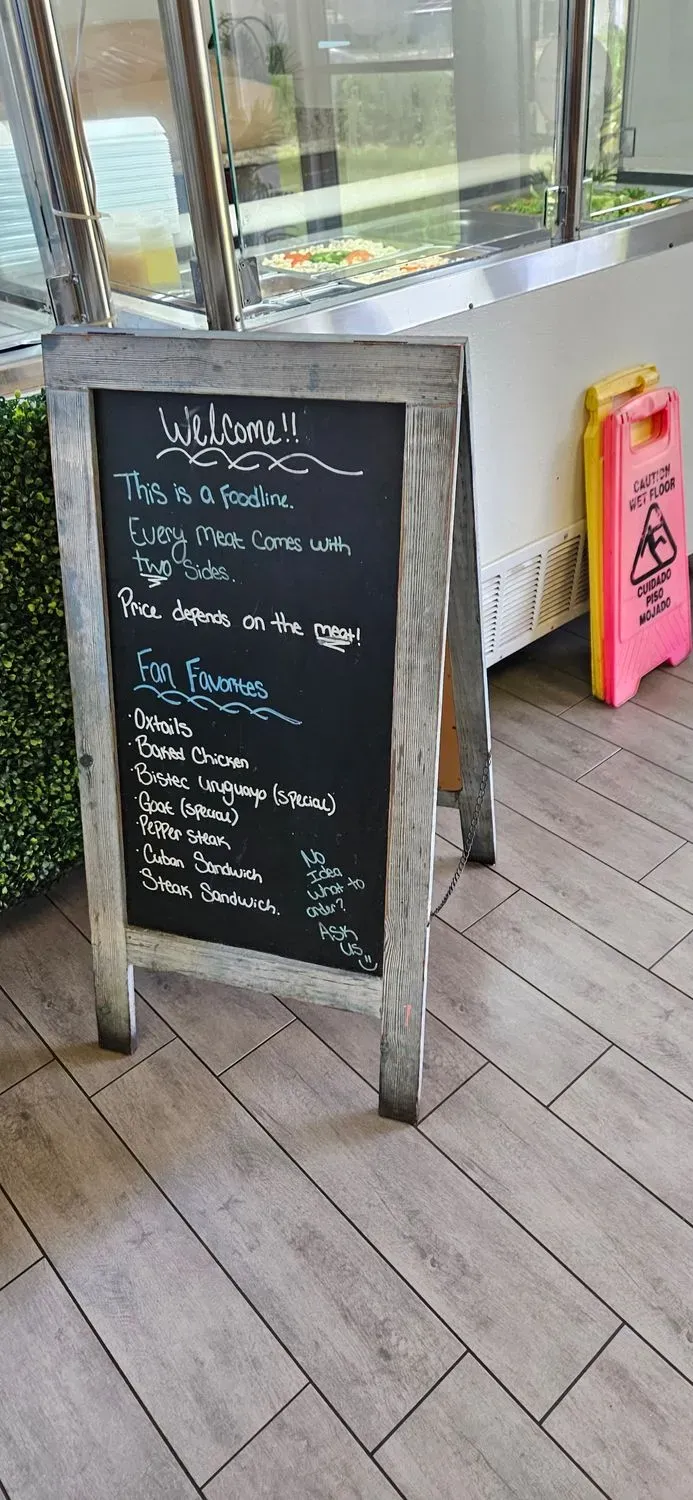 Welcome!!
This is a Foodline.
Every meat comes with
two Sides.
Price depends on the meat!
Fan Favorites
·Oxtails
·Baked Chicken
·Bistec uruguayo (special)
·Goat (special)
·Pepper steak
·Cuban Sandwich
·Steak Sandwich.
No
Idea
what to
order?
Ask
us
CAUTION
WET FLOOR
CUIDADO
PISO
MOJADO